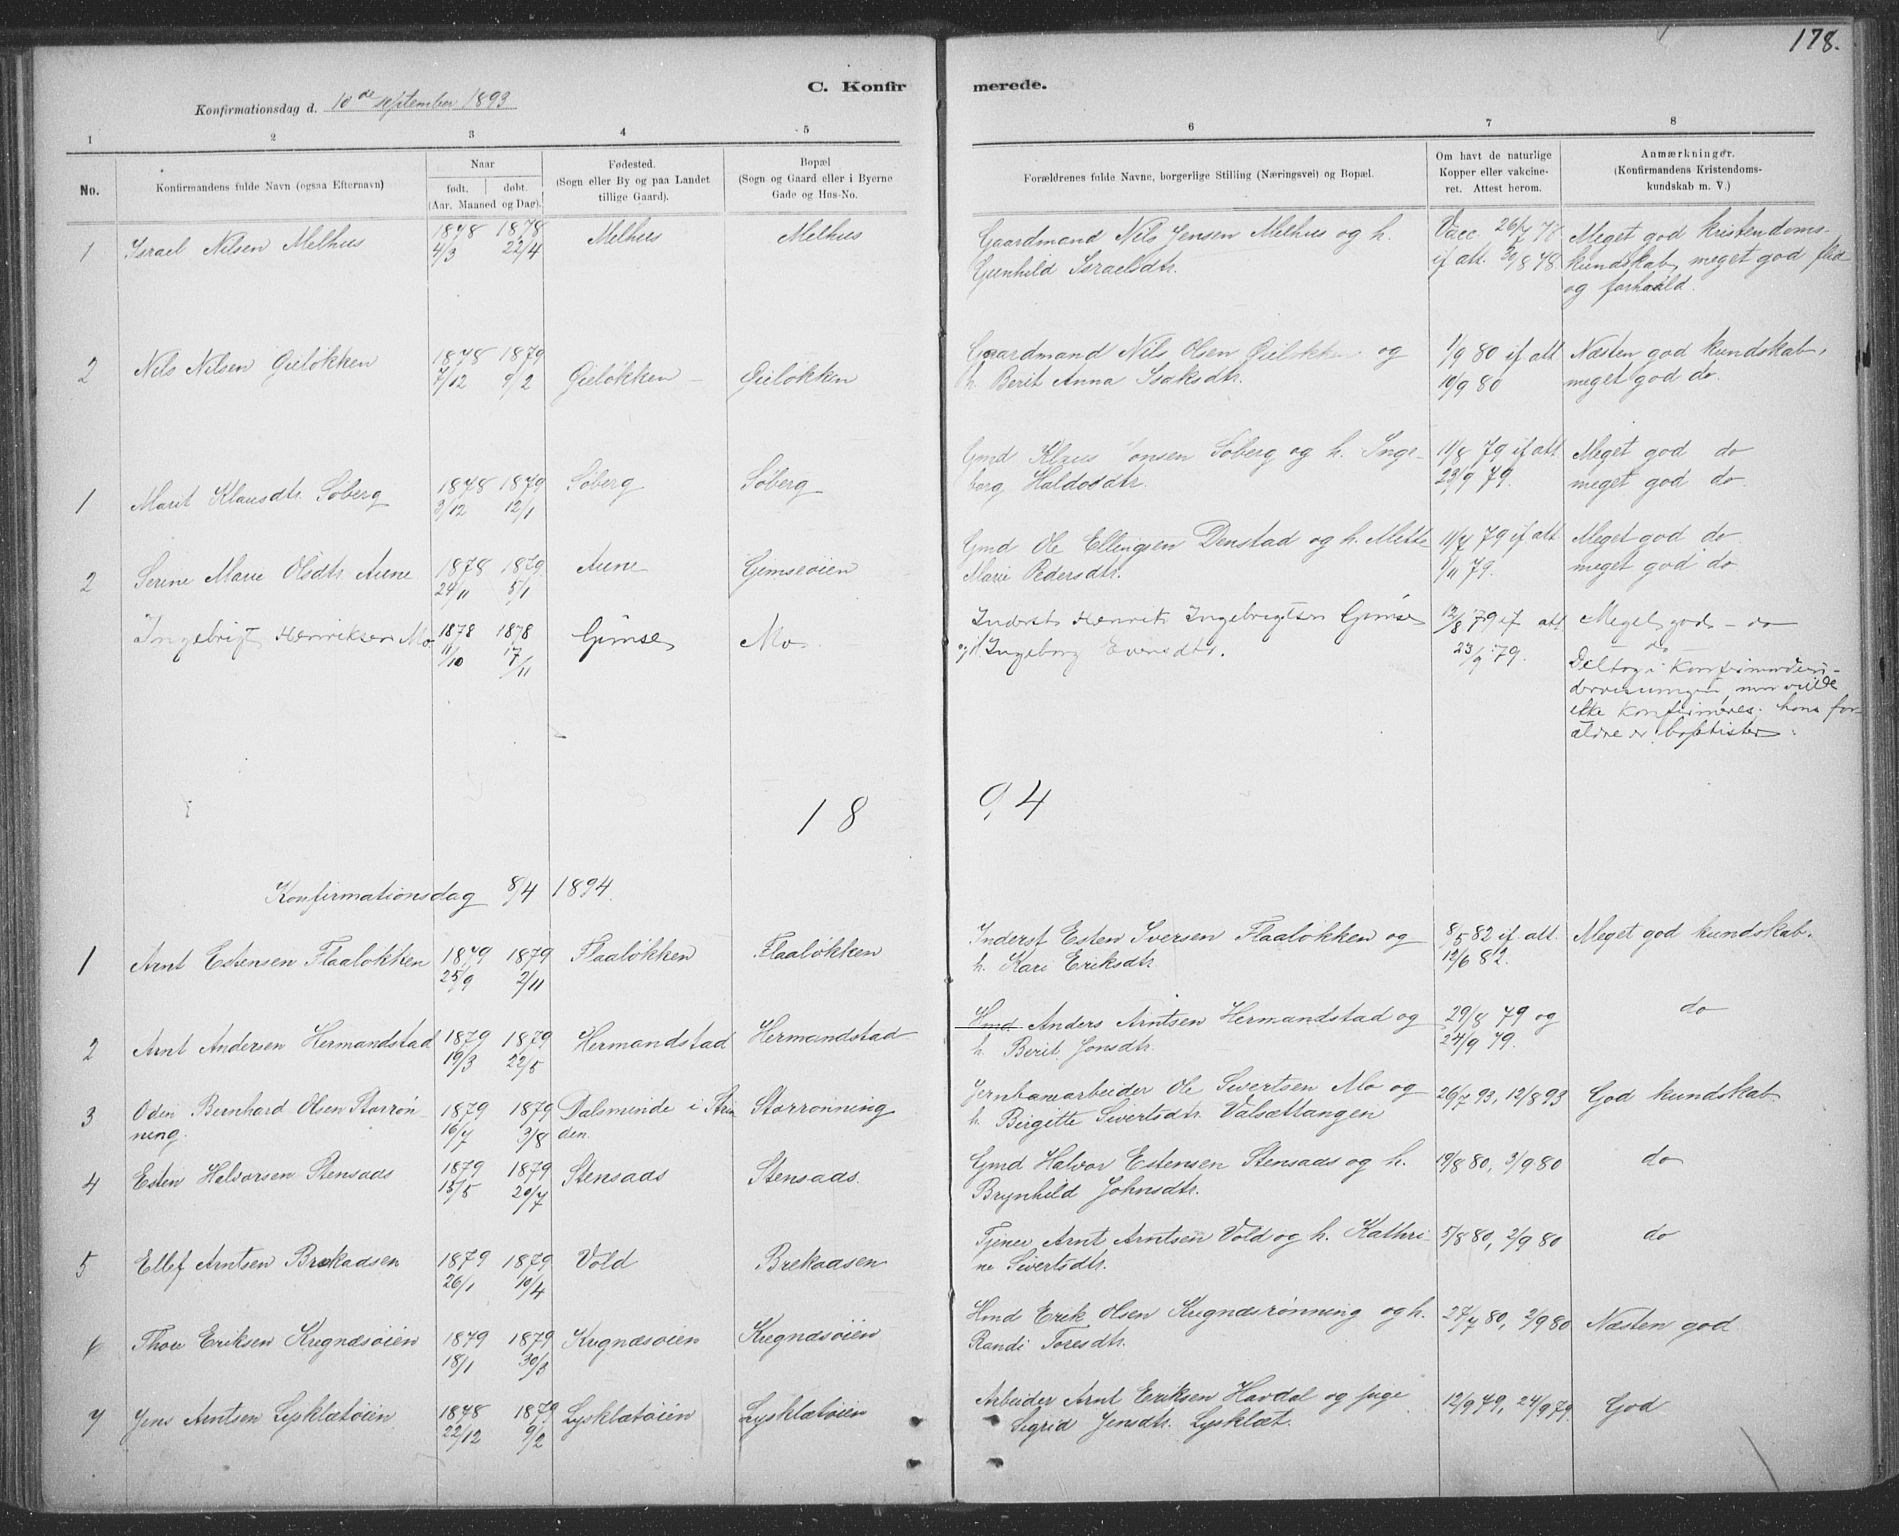 178.
C. Konfirmerede.
Konfirmationsdag d. 10de september 1893
1 2 3 4 5 6 7 8
No.
Konfirmandens fulde Navn (ogsaa Efternavn)
Naar
født. døbt.
(Aar. Maaned og Dag).
Fødested.
(Sogn eller By og paa Landet
tillige Gaard).
Bopæl
(Sogn og Gaard eller i Byerne
Gade og Hus-No.
Forældrenes fulde Navne, borgerlige Stilling (Næringsvei) og Bopæl.
Om havt de naturlige
Kopper eller vakcine-
ret. Attest herom.
Anmærkninger.
(Konfirmandens Kristendoms-
kundskab m. V.)
1 Israel Nilsen Melhus 1878 1878 Melhus Melhus Gaardmand Nils Jensen Melhus og h. Vacc. 26/7 78 Meget god kristendoms-
4/3 22/4 Gunhild Israelsdtr. if att. 30/8 78. kundskab, meget god flid
og forhold.
2 Nils Nilsen Øieløkken 1878 1879 Øieløkken Øieløkken Gaardmand Nils Olsen Øieløkken og 1/9 80 if att Næsten god kundskab,
7/12 9/2 h. Berit Anna Isaksdtr. 10/9 80 meget god do.
1 Marit Klausdtr. Søberg 1878 1879 Søberg Søberg Gmd Klaus Jonsen Søberg og h. Inge- 11/8 79 if att. Meget god do
3/12 12/1 borg Haldosdtr. 23/9 79. meget god do.
2 Serine Marie Olsdtr. Aune 1878 1879 Aune Gimseøien Gmd Ole Ellingsen Denstad og h. Mette 11/7 79 if att Meget god do.
24/11 5/1 Marie Pedersdtr. 1/11 79. meget god do
Ingebrigt Henriksen Mo 1878 1878 Gimse Mo Inderst Henrik Ingebrigtsen Gimse 12/8 79 if att Meget god - do
11/10 17/11 og h. Ingeborg Evensdtr. 23/9 79. - do -
Deltog i Konfirmandun-
dervisningen, men vilde
ikke konfirmeres. hans for-
ældre er baptister.
18 94
Konfirmationsdag 8/4 1894.
1 Arnt Estensen Flaaløkken 1879 1879 Flaaløkken Flaaløkken Inderst Esten Iversen Flaaløkken og 8/5 82 if. att. Meget god kundskab.
25/9 2/11 h. Kari Eriksdtr. 12/6 82.
2 Arnt Andersen Hermandstad 1879 1879 Hermandstad Hermandstad Hmd. Anders Arntsen Hermandstad og 29/8 79 og do
19/3 22/5 h. Berit Jonsdtr. 24/9 79.
3 Odin Bernhard Olsen Storrøn- 1879 1879 Dalsminde i Strin Storrønning Jernbanearbeider Ole Sivertsen Mo og 26/7 93, 12/8 93 God kundskab
ning. 16/7 3/8 den. h. Birgitte Sivertsdtr. Valsættangen
4 Esten Halvorsen Stensaas 1879 1879 Stensaas Stensaas. Gmd Halvor Estensen Stensaas og h. 19/8 80, 3/9 80 do
15/5 20/7 Brynhild Johnsdtr.
5 Ellef Arntsen Brekaasen 1879 1879 Vold Brekaasen Tjener Arnt Arntsen Vold og h. Kathri- 5/8 80, 2/9 80 do
26/1 10/4 ne Sivertsdtr.
6 Thore Eriksen Kregnæsøien 1879 1879 Kregnæsøien Kregnæsøien Hmd Erik Olsen Kregnæsrønning og h. 27/7 80, 2/9 80 Næsten god
18/1 30/3 Randi Toresdtr.
7 Jens Arntsen Lysklætøien 1878 1879 Lysklætøien Lysklætøien Arbeider Arnt Eriksen Havdal og pige 12/9 79, 24/9 79. God
22/12 9/2 Sigrid Jensdtr. Lysklæt.